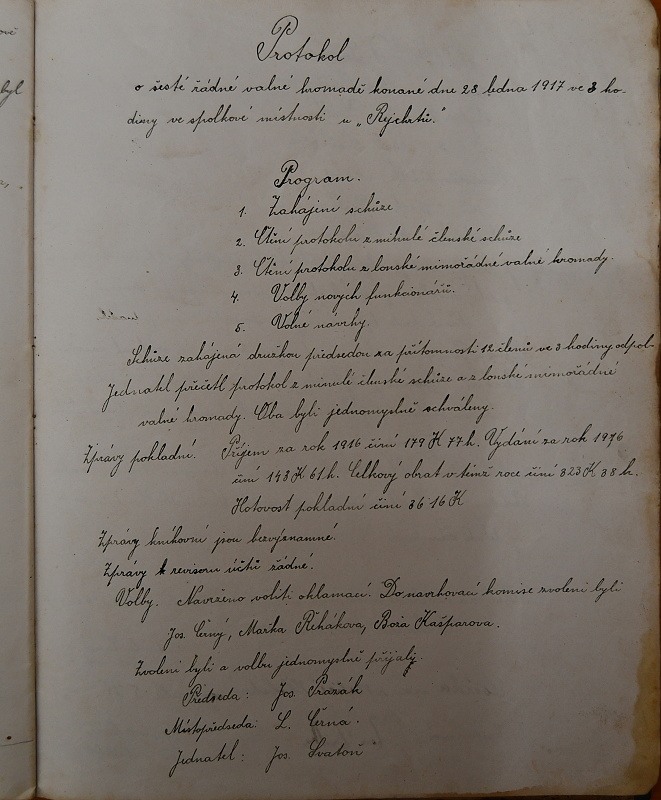 Protokol
o šesté řádné valné hromadě konané dne 28 ledna 1917 ve 3 ho-
diny ve spolkové místnosti u „Rychrtů."
Program.
1. Zahájení schůze
2. Čtení protokolu z minulé členské schůze
3. Čtení protokolu z lonské mimořádné valné hromady.
4. Volby nových funkcionářů.
5. Volné návrhy.
Schůze zahájená družkou předsedou za přítomnosti 12 členů ve 3 hodiny odpol.
Jednatel přečetl protokol z minulé členské schůze a z lonské mimořádné
valné hromady. Oba byli jednomyslně schváleny.
Zprávy pokladní. Příjem za rok 1916 činí 179 K 77 h. Vydání za rok 1916
činí 143 K 61 h. Celkový obrat v témž roce činí 323 K 38 h.
Hotovost pokladní činí 36·16 K
Zprávy knihovní jsou bezvýznamné.
Zprávy revisorů účtů žádné.
Volby. Navrženo voliti oklamací. Do navrhovací komise zvoleni byli
Jos. Černý, Mařka Řehákova, Boža Kašparova.
Zvoleni byli a volbu jednomyslně přijaly.
Předseda: Jos. Pražák
Místopředseda: L. Černá.
Jednatel: Jos. Svatoň
byl